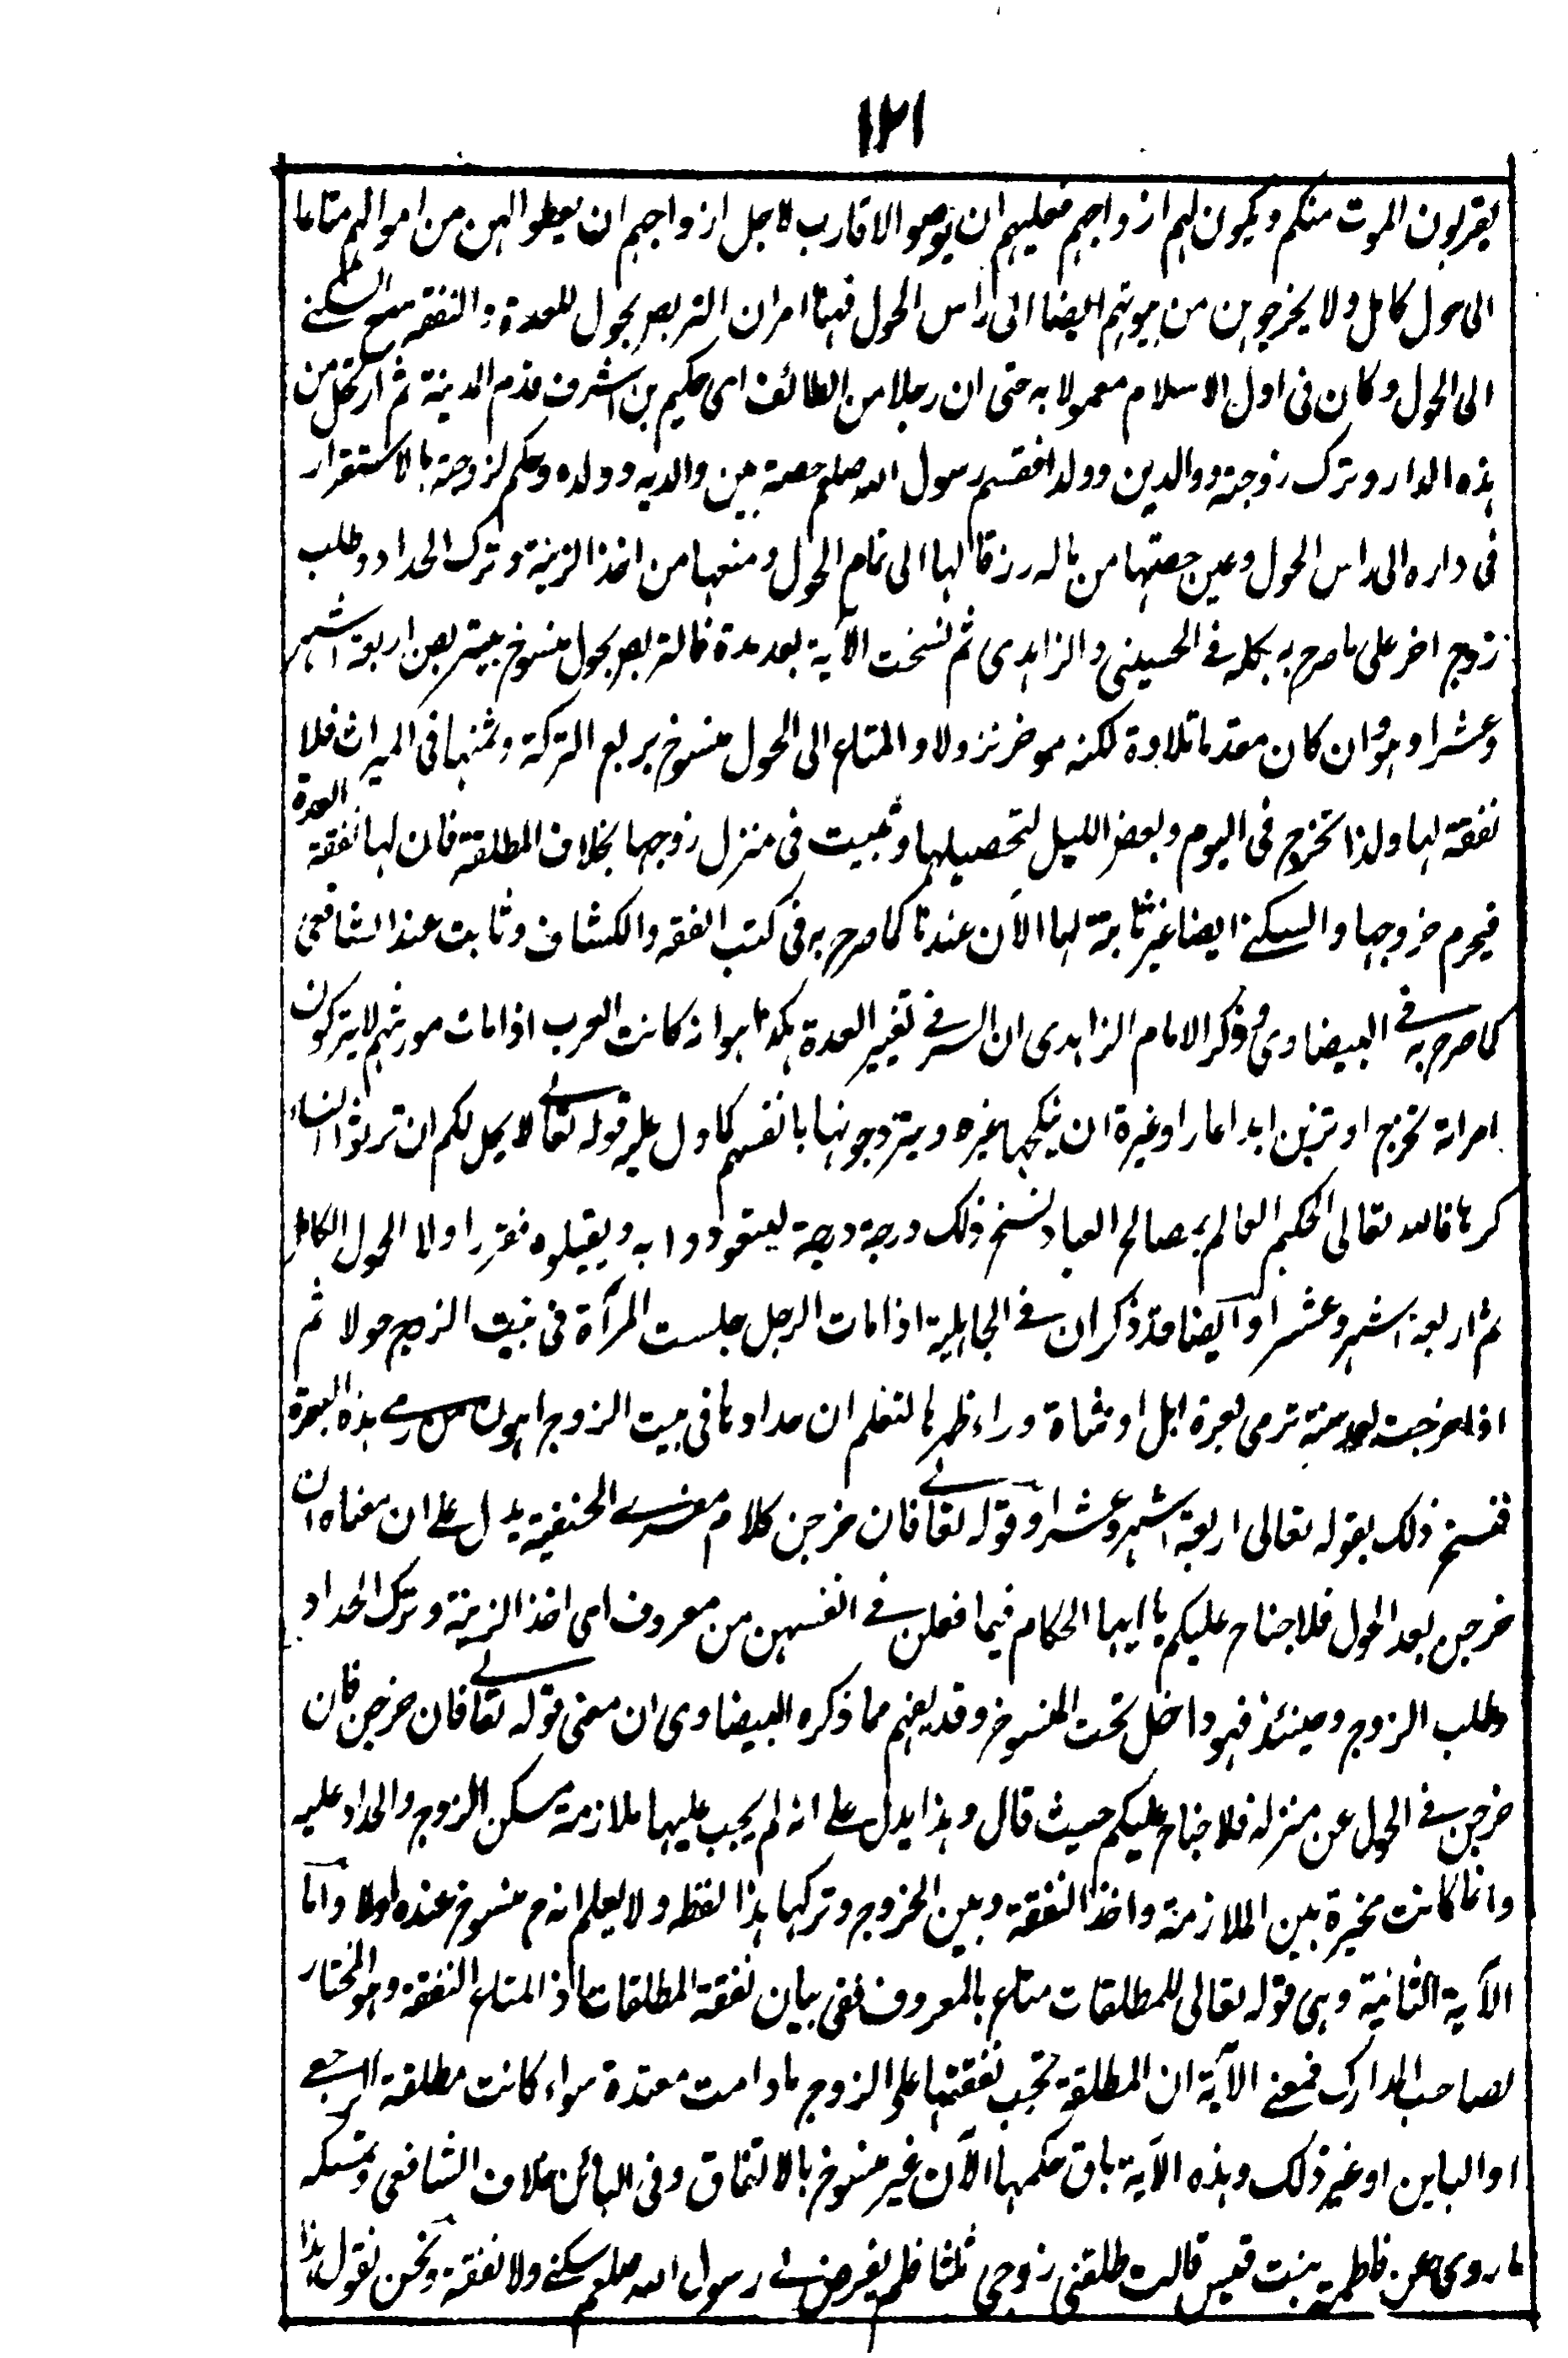 ١٢١
يقربون الموت منكم ويكون لهم ازواجهم فعليهم ان يوصوا لاقارب لاجل ازواجهم ان يعطوا لهن من اموالهم متاعا
الى حول كامل ولا يخرجوهن من بيوتهم ايضا الى راس الحول فهنا امران التربص بحول للعدة والنفقة مع السكنے
الى الحول وكان فى اول الاسلام معمولا به حتى ان رجلا من الطائف اى حكيم بن اشرف قدم المدينة ثم ارتحل من
هذه الدار وترك زوجة ووالدين وولدا فقسم رسول الله صلعم حصته بين والديه وولده وحكم لزوجته بالاستقرار
فى داره الى راس الحول وعين حصتها من ماله رزقا لها الى تمام الحول ومنعها من اخذ الزينة وترك الحداد وطلب
زوج اخر على ما صرح به كله فے الحسينى والزاهدى ثم نسخت الآية بعد مدة فالتربص بحول منسوخ بيتربصن اربعة اشهر
وعشرا وهو وان كان مقدما تلاوة لكنه موخر نزولا والمتاع الى الحول منسوخ بربع التركة وثمنها فى الميراث فلا
نفقة لها ولذا تخرج فى اليوم وبعض الليل لتحصيلها وتبيت فى منزل زوجها بخلاف المطلقة فان لها نفقة العدة
فيحرم خروجها والسكنے ايضا غير ثابتة لها الآن عندنا كما صرح به فى كتب الفقه والكشاف وثابت عند الشافعى
كما صرح به فے البيضاوى وذكر الامام الزاهدى ان السر فے تغيير العدة هكذا هو انه كانت العرب اذا مات مورثهم لا يتركون
امراته تخرج او تزين ابدا عارا وغيرة ان ينكحها غيره ويتزوجونها بانفسهم كما دل عليه قوله تعالے لا يحل لكم ان ترثوا النساء
كرها فالله تعالى الحكيم العالم بمصالح العباد نسخ ذلك درجة درجة ليتعودوا به ويقبلوه فقرر اولا الحول الكامل
ثم اربعة اشهر وعشرا وايضا قد ذكر ان فے الجاهلية اذا مات الرجل جلست المرآة فى بيت الزوج حولا ثم
اذا خرجت بعد سنة ترمى بعرة ابل او شاة وراء ظهرها لتعلم ان حدادها فى بيت الزوج اهون من رمے هذه البعرة
فنسخ ذلك بقوله تعالى اربعة اشهر وعشرا وقوله تعالے فان خرجن كلام مفسرے الحنفية يدل علے ان معناه ان
خرجن بعد الحول فلا جناح عليكم يا ايها الحكام فيما فعلن فے انفسهن من معروف اى اخذ الزينة وترك الحداد
وطلب الزوج وحينئذ فهو داخل تحت المنسوخ وقد يفهم مما ذكره البيضاوى ان معنى قوله تعالے فان خرجن فان
خرجن فے الحول عن منزله فلا جناح عليكم حيث قال وهذا يدل علے انه لم يجب عليها ملازمة مسكن الزوج والحداد عليه
وانما كانت مخيرة بين الملازمة واخذ النفقة وبين الخروج وتركها هذا لفظه ولا يعلم انه م منسوخ عنده اولا واما
الآية الثانية وهى قوله تعالى للمطلقات متاع بالمعروف ففى بيان نفقة المطلقات اذ المتاع النفقة وهو المختار
لصاحب المدارك فمعنے الآية ان المطلقة تجب نفقتها على الزوج ما دامت معتدة سواء كانت مطلقة الرجعے
او الباين او غير ذلك وهذه الآية باق حكمها الآن غير منسوخ بالاتفاق وفى البائن خلاف الشافعى وتمسكه
ما روى عن فاطمة بنت قيس قالت طلقنى زوجى ثلثا فلم يفرض لے رسول الله صلعم سكنے ولا نفقة ونحن نقول هذا